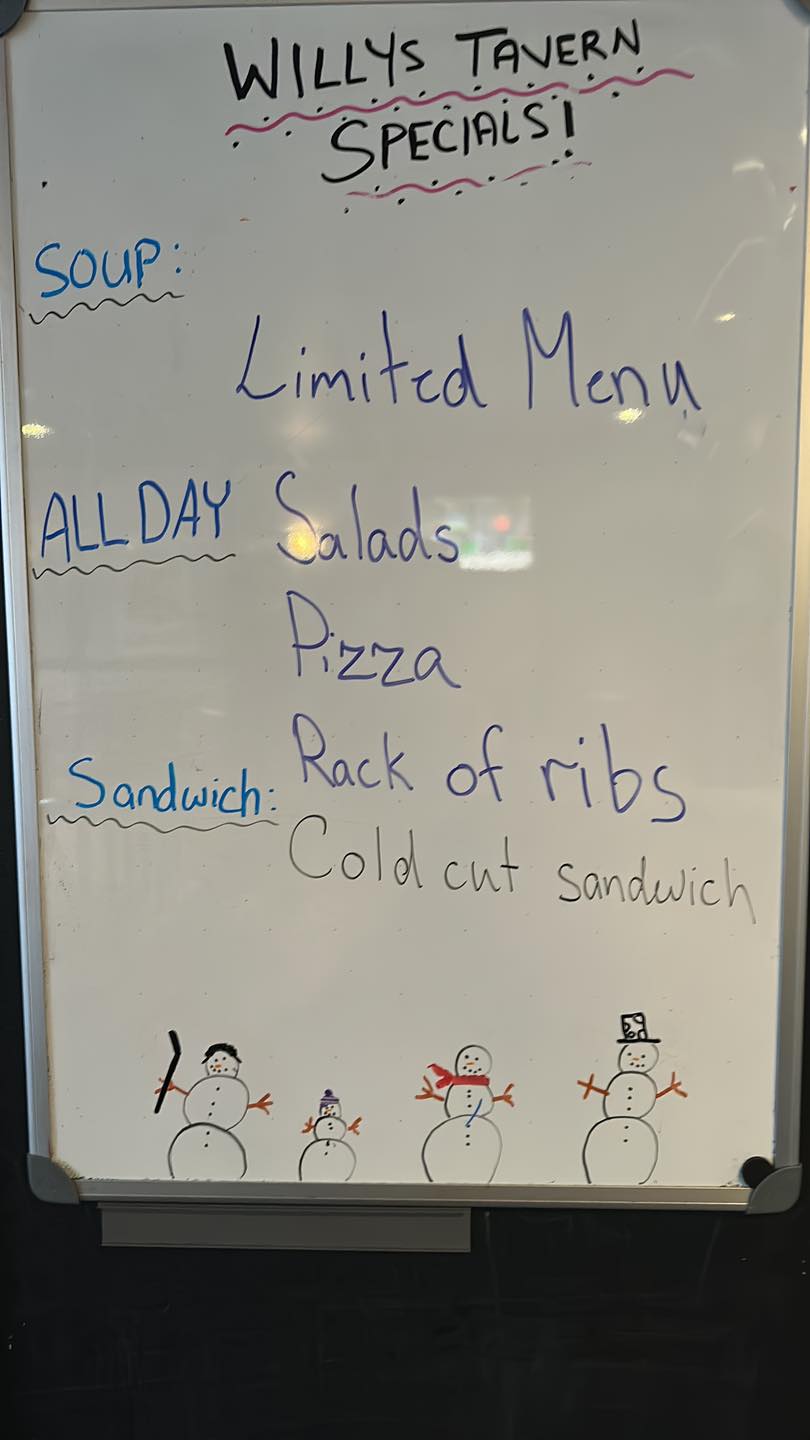 WILLYS TAVERN
SPECIALS!
SOUP:
Limited Menu
ALL DAY Salads
Pizza
Rack of ribs
Sandwich:
Cold cut sandwich